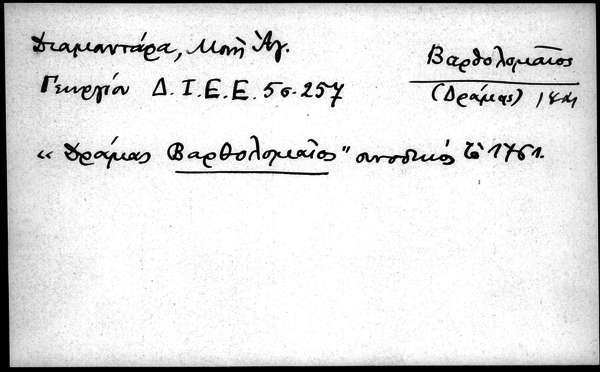 Διαμαντάρα, Μονὴ Ἁγ.
Γεωργίου Δ.Ι.Ε.Ε. 5 σ. 257
Βαρθολομαῖος
(Δράμας)
“Δράμας Βαρθολομαῖος” συνοδικός τῷ 1761.